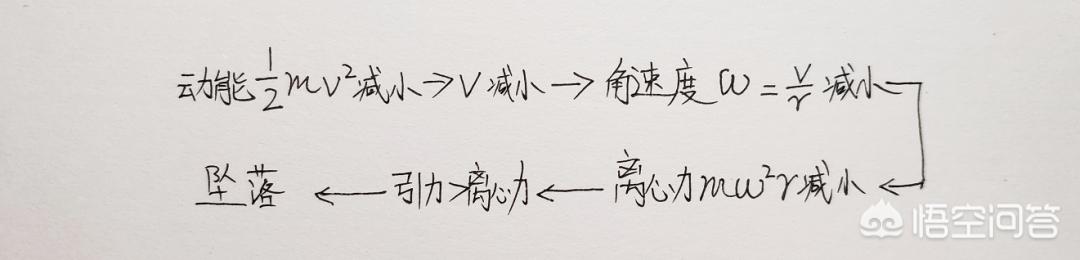 动能½mv²减小→v减小→角速度ω=v/r减小
坠落←引力>离心力←离心力mω²r减小←
悟空问答